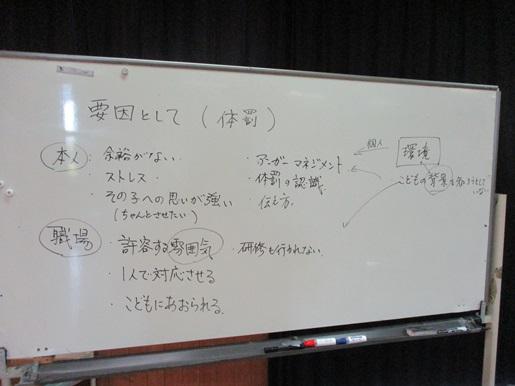 要因として (体罰)
本人 ・余裕がない
・ストレス
・その子への思いが強い
(ちゃんとさせたい)
・アンガーマネジメント
・体罰の認識
・伝え方
個人
環境
こどもの背景を知ろうとしていない
職場 ・許容する雰囲気 ・研修も行われない
・1人で対応させる
・こどもにあおられる